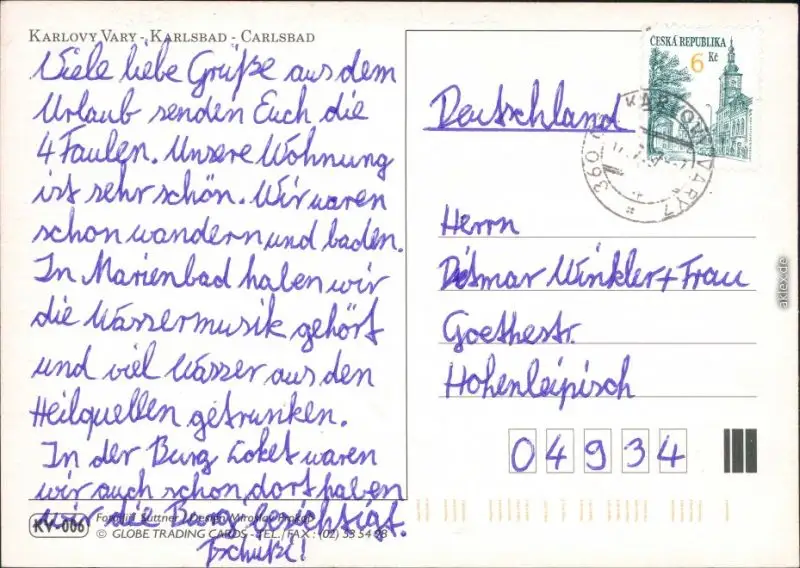 KARLOVY VARY - KARLSBAD - CARLSBAD
Viele liebe Grüße aus dem
Urlaub senden Euch die
4 Faulen. Unsere Wohnung
ist sehr schön. Wir waren
schon wandern und baden.
In Marienbad haben wir
die Wassermusik gehört
und viel Wasser aus den
Heilquellen getrunken.
In der Burg Loket waren
wir auch schon, dort haben
wir die Burg besichtigt.
Tschüßi!
KV-006
© GLOBE TRADING CARDS - TEL./FAX: (02) 33 54 98
ČESKÁ REPUBLIKA
6 Kč
KARLOVY VARY 7
Deutschland
Herrn
Ditmar Winkler + Frau
Goethestr.
Hohenleipisch
04934
akpool.de